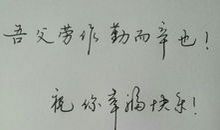 吾父劳作勤而辛也！
祝你幸福快乐！